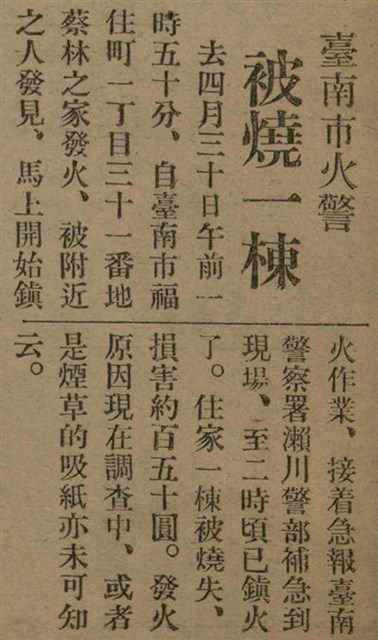 臺南市火警
被燒一棟
去四月三十日午前一
時五十分、自臺南市福
住町一丁目三十一番地
蔡林之家發火、被附近
之人發見、馬上開始鎮
火作業、接着急報臺南
警察署瀨川警部補急到
現場、至二時頃已鎮火
了。住家一棟被燒失、
損害約百五十圓。發火
原因現在調查中、或者
是煙草的吸紙亦未可知
云。